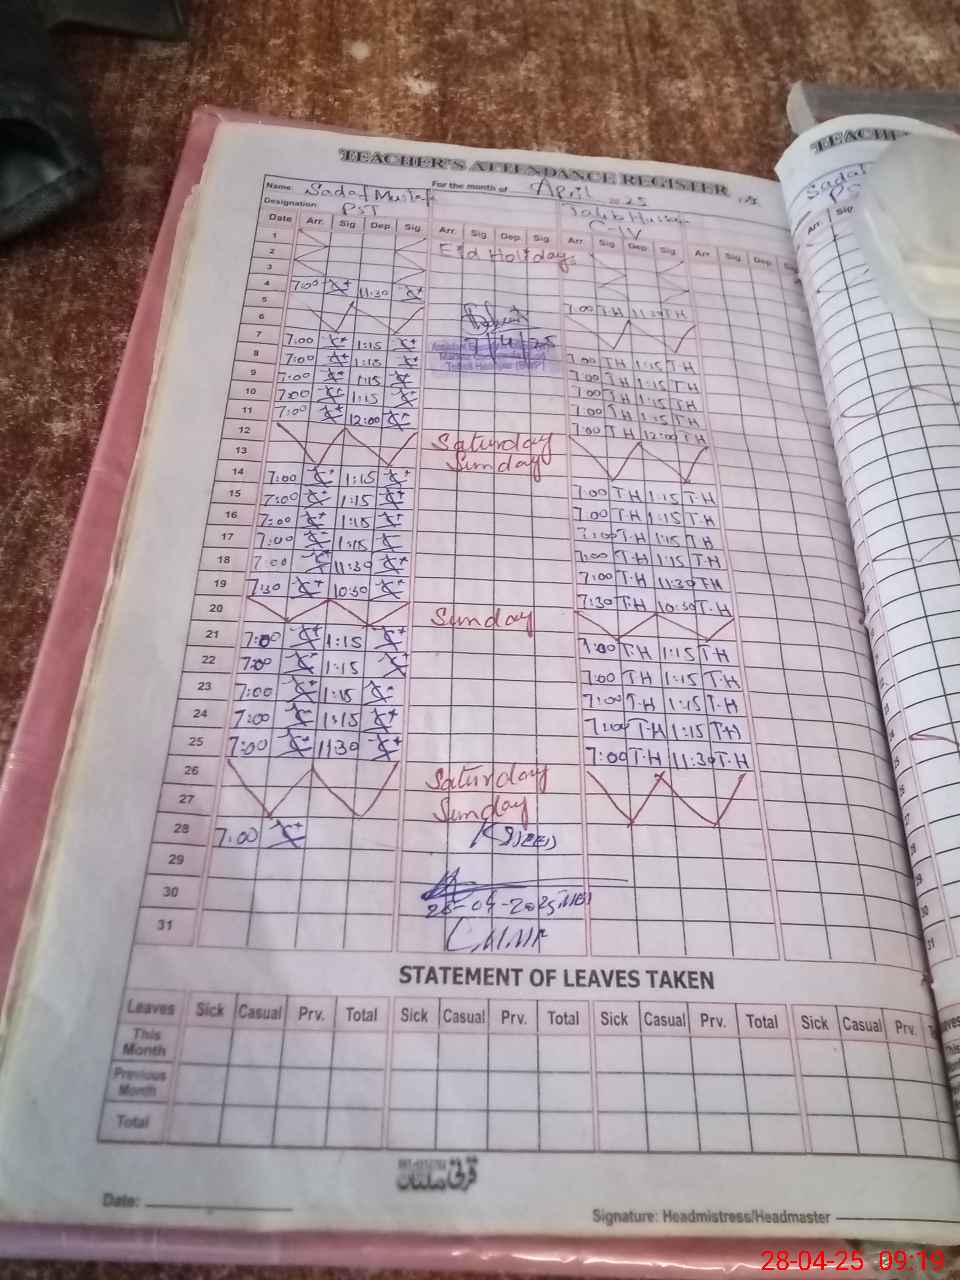 TEACHER'S ATTENDANCE REGISTER
Name: Sadaf Mustafa For the month of April 2025
Designation: PST C-IV
Date Arr. Sig Dep. Sig. Arr. Sig. Dep. Sig. Arr. Sig. Dep. Sig. Arr. Sig. Dep. Sig
1
2 Eid Holidays
3
4 7:00 11:30 7:00 T-H 11:30 T-H
5
6
7 7:00 1:15 7:00 T-H 1:15 T-H
8 7:00 1:15 7:00 T-H 1:15 T-H
9 7:00 1:15 7:00 T-H 1:15 T-H
10 7:00 1:15 7:00 T-H 1:15 T-H
11 7:00 12:00 7:00 T-H 12:00 T-H
12 Saturday
13 Sunday
14 7:00 1:15 7:00 T-H 1:15 T-H
15 7:00 1:15 7:00 T-H 1:15 T-H
16 7:00 1:15 7:00 T-H 1:15 T-H
17 7:00 1:15 7:00 T-H 1:15 T-H
18 7:00 11:30 7:00 T-H 11:30 T-H
19 7:30 10:30 7:30 T-H 10:30 T-H
20 Sunday
21 7:00 1:15 7:00 T-H 1:15 T-H
22 7:00 1:15 7:00 T-H 1:15 T-H
23 7:00 1:15 7:00 T-H 1:15 T-H
24 7:00 1:15 7:00 T-H 1:15 T-H
25 7:00 11:30 7:00 T-H 11:30 T-H
26 Saturday
27 Sunday
28 7:00
29
30 28-04-2025
31
STATEMENT OF LEAVES TAKEN
Leaves Sick Casual Prv. Total Sick Casual Prv. Total Sick Casual Prv. Total Sick Casual Prv.
This Month
Previous Month
Total
قریشی ملتان
Date:
Signature: Headmistress/Headmaster
TEACH
Sadaf
PS
Arr. Sig
28-04-25 09:19